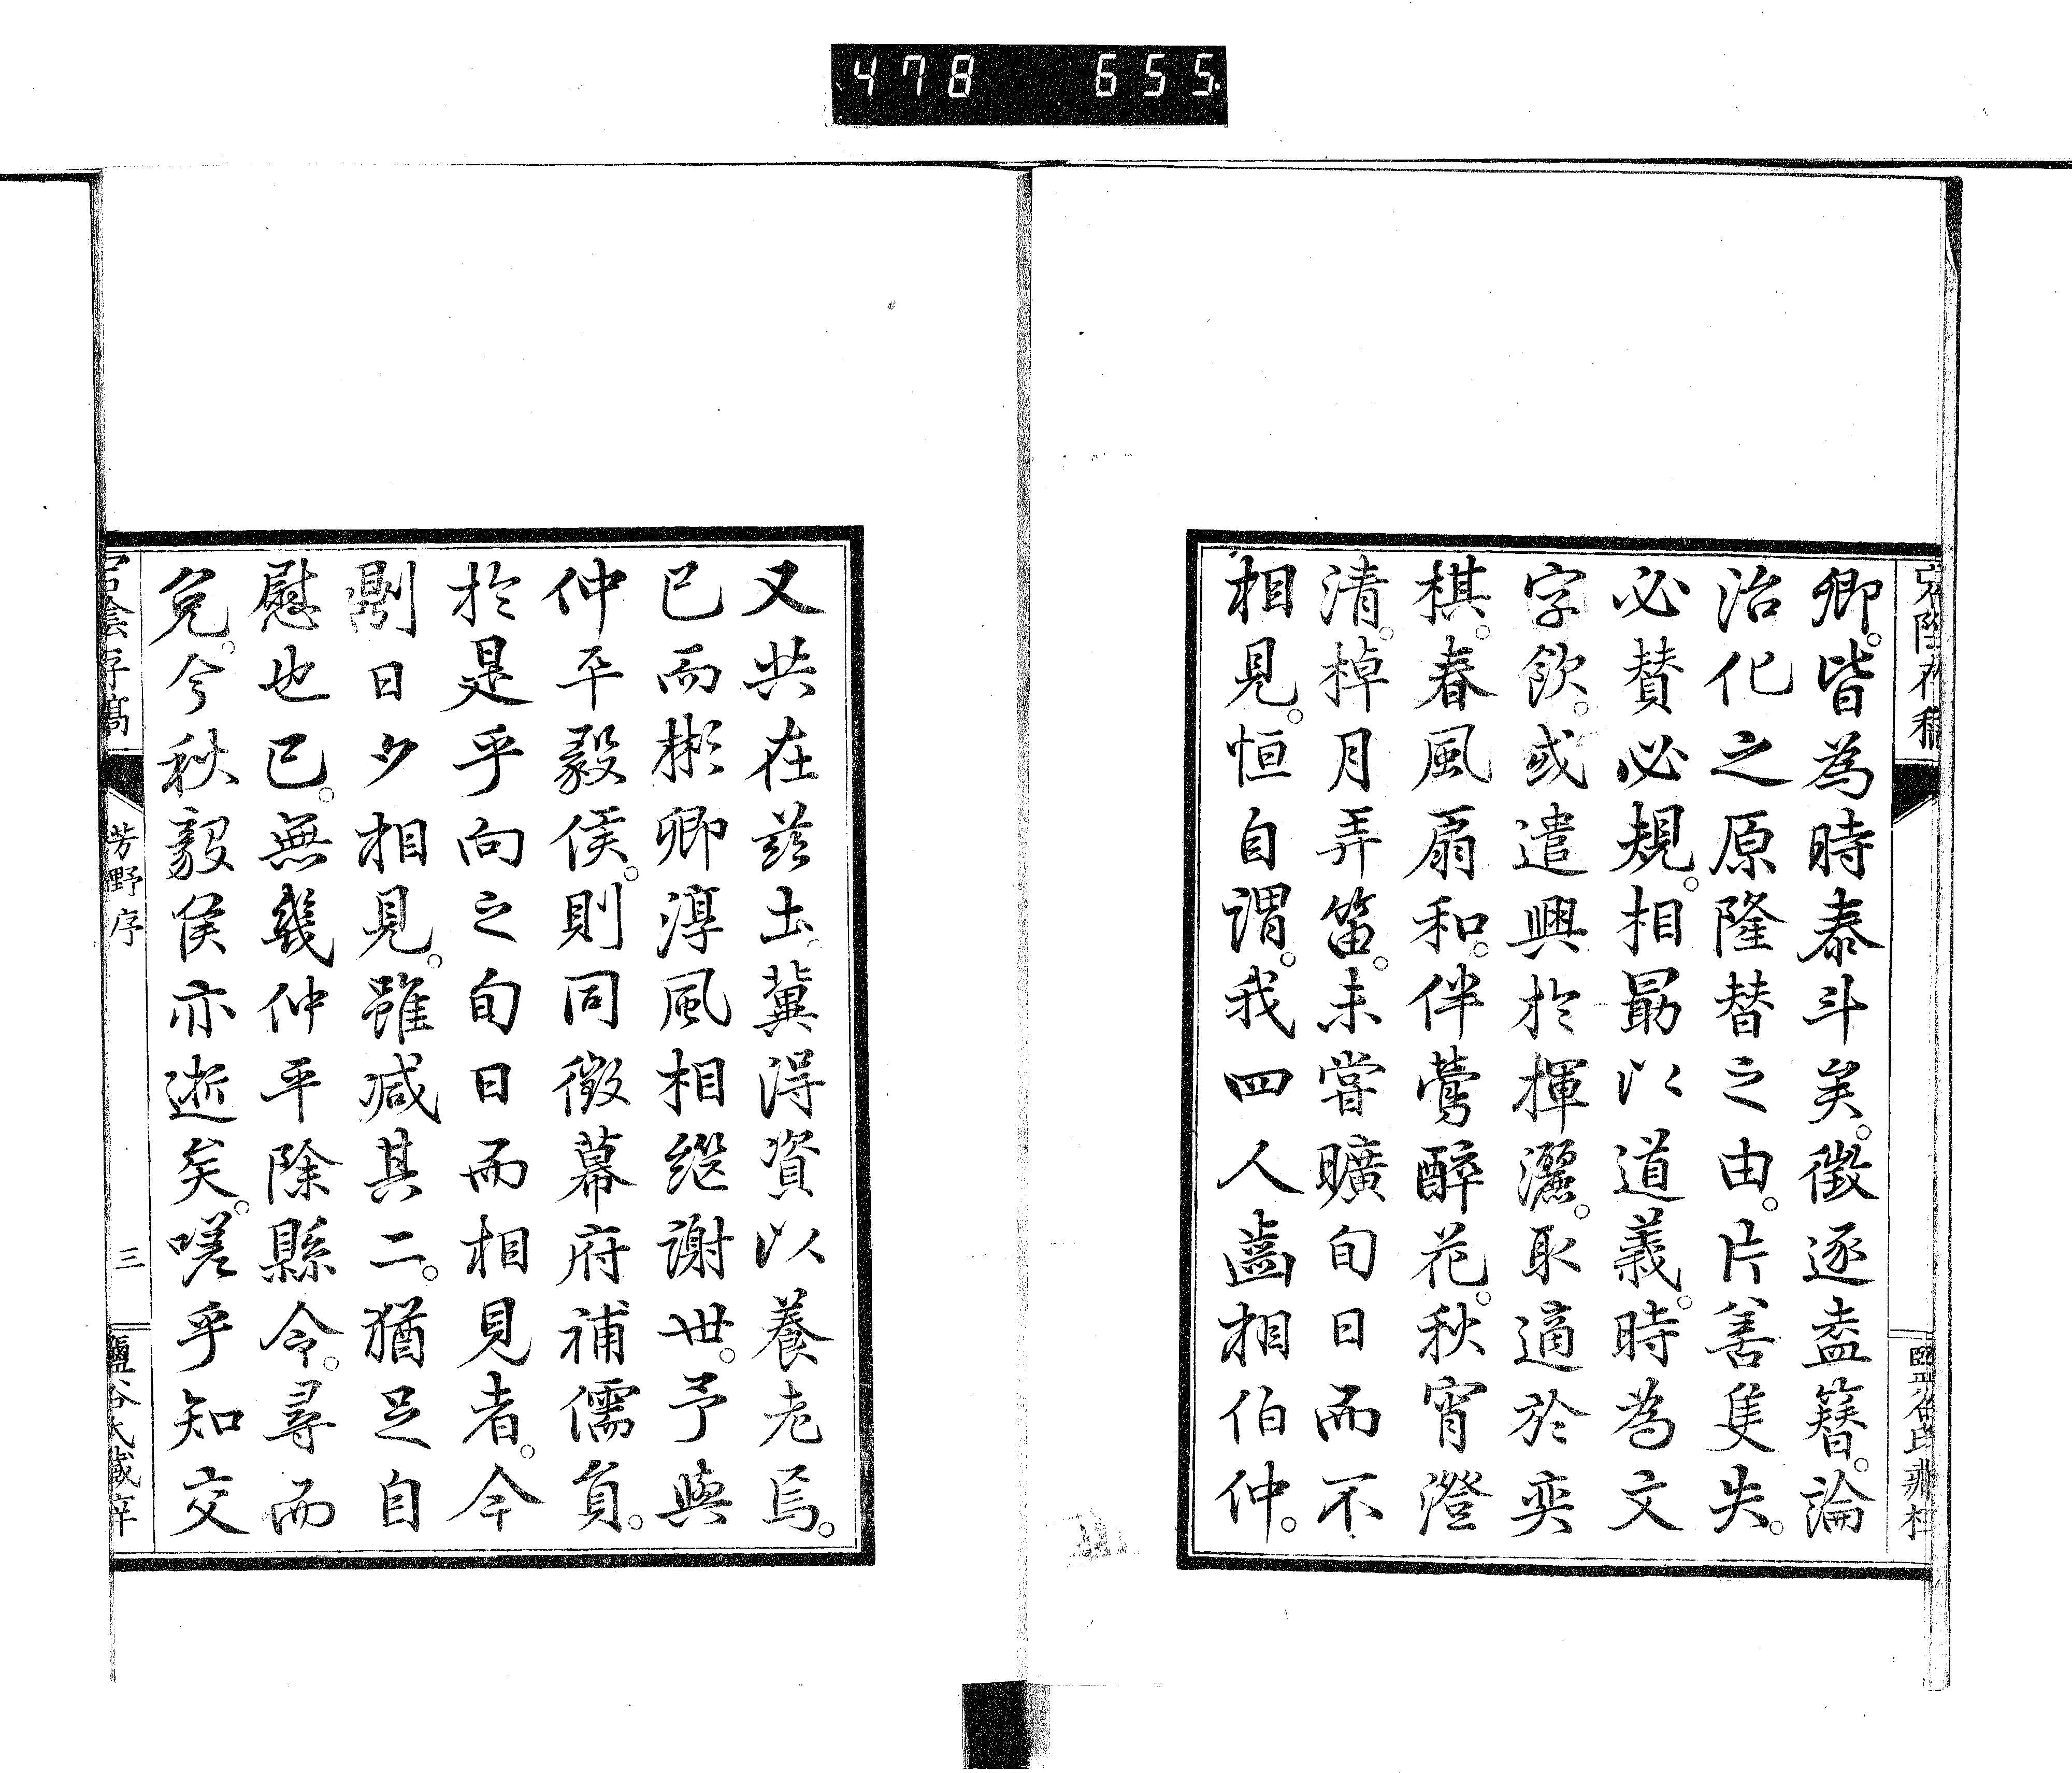 478 655
卿。皆為時泰斗矣。徵逐盍簪。論
治化之原隆替之由。片善隻失。
必賛必規。相勗以道義。時為文
字飲。或遣興於揮灑。取適於奕
棋。春風扇和。伴鶯醉花。秋宵澄
清。棹月弄笛。未嘗曠旬日而不
相見。恒自謂。我四人齒相伯仲。
又共在茲土。冀得資以養老焉。
已而彬卿淳風相繼謝世。予與
仲平毅侯。則同徵幕府補儒員。
於是乎向之旬日而相見者。今
則日夕相見。雖減其二。猶足自
慰也已。無幾仲平除縣令。尋而
免。今秋毅侯亦逝矣。嗟乎知交
宕陰存稿
芳野序
三
鹽谷氏藏梓